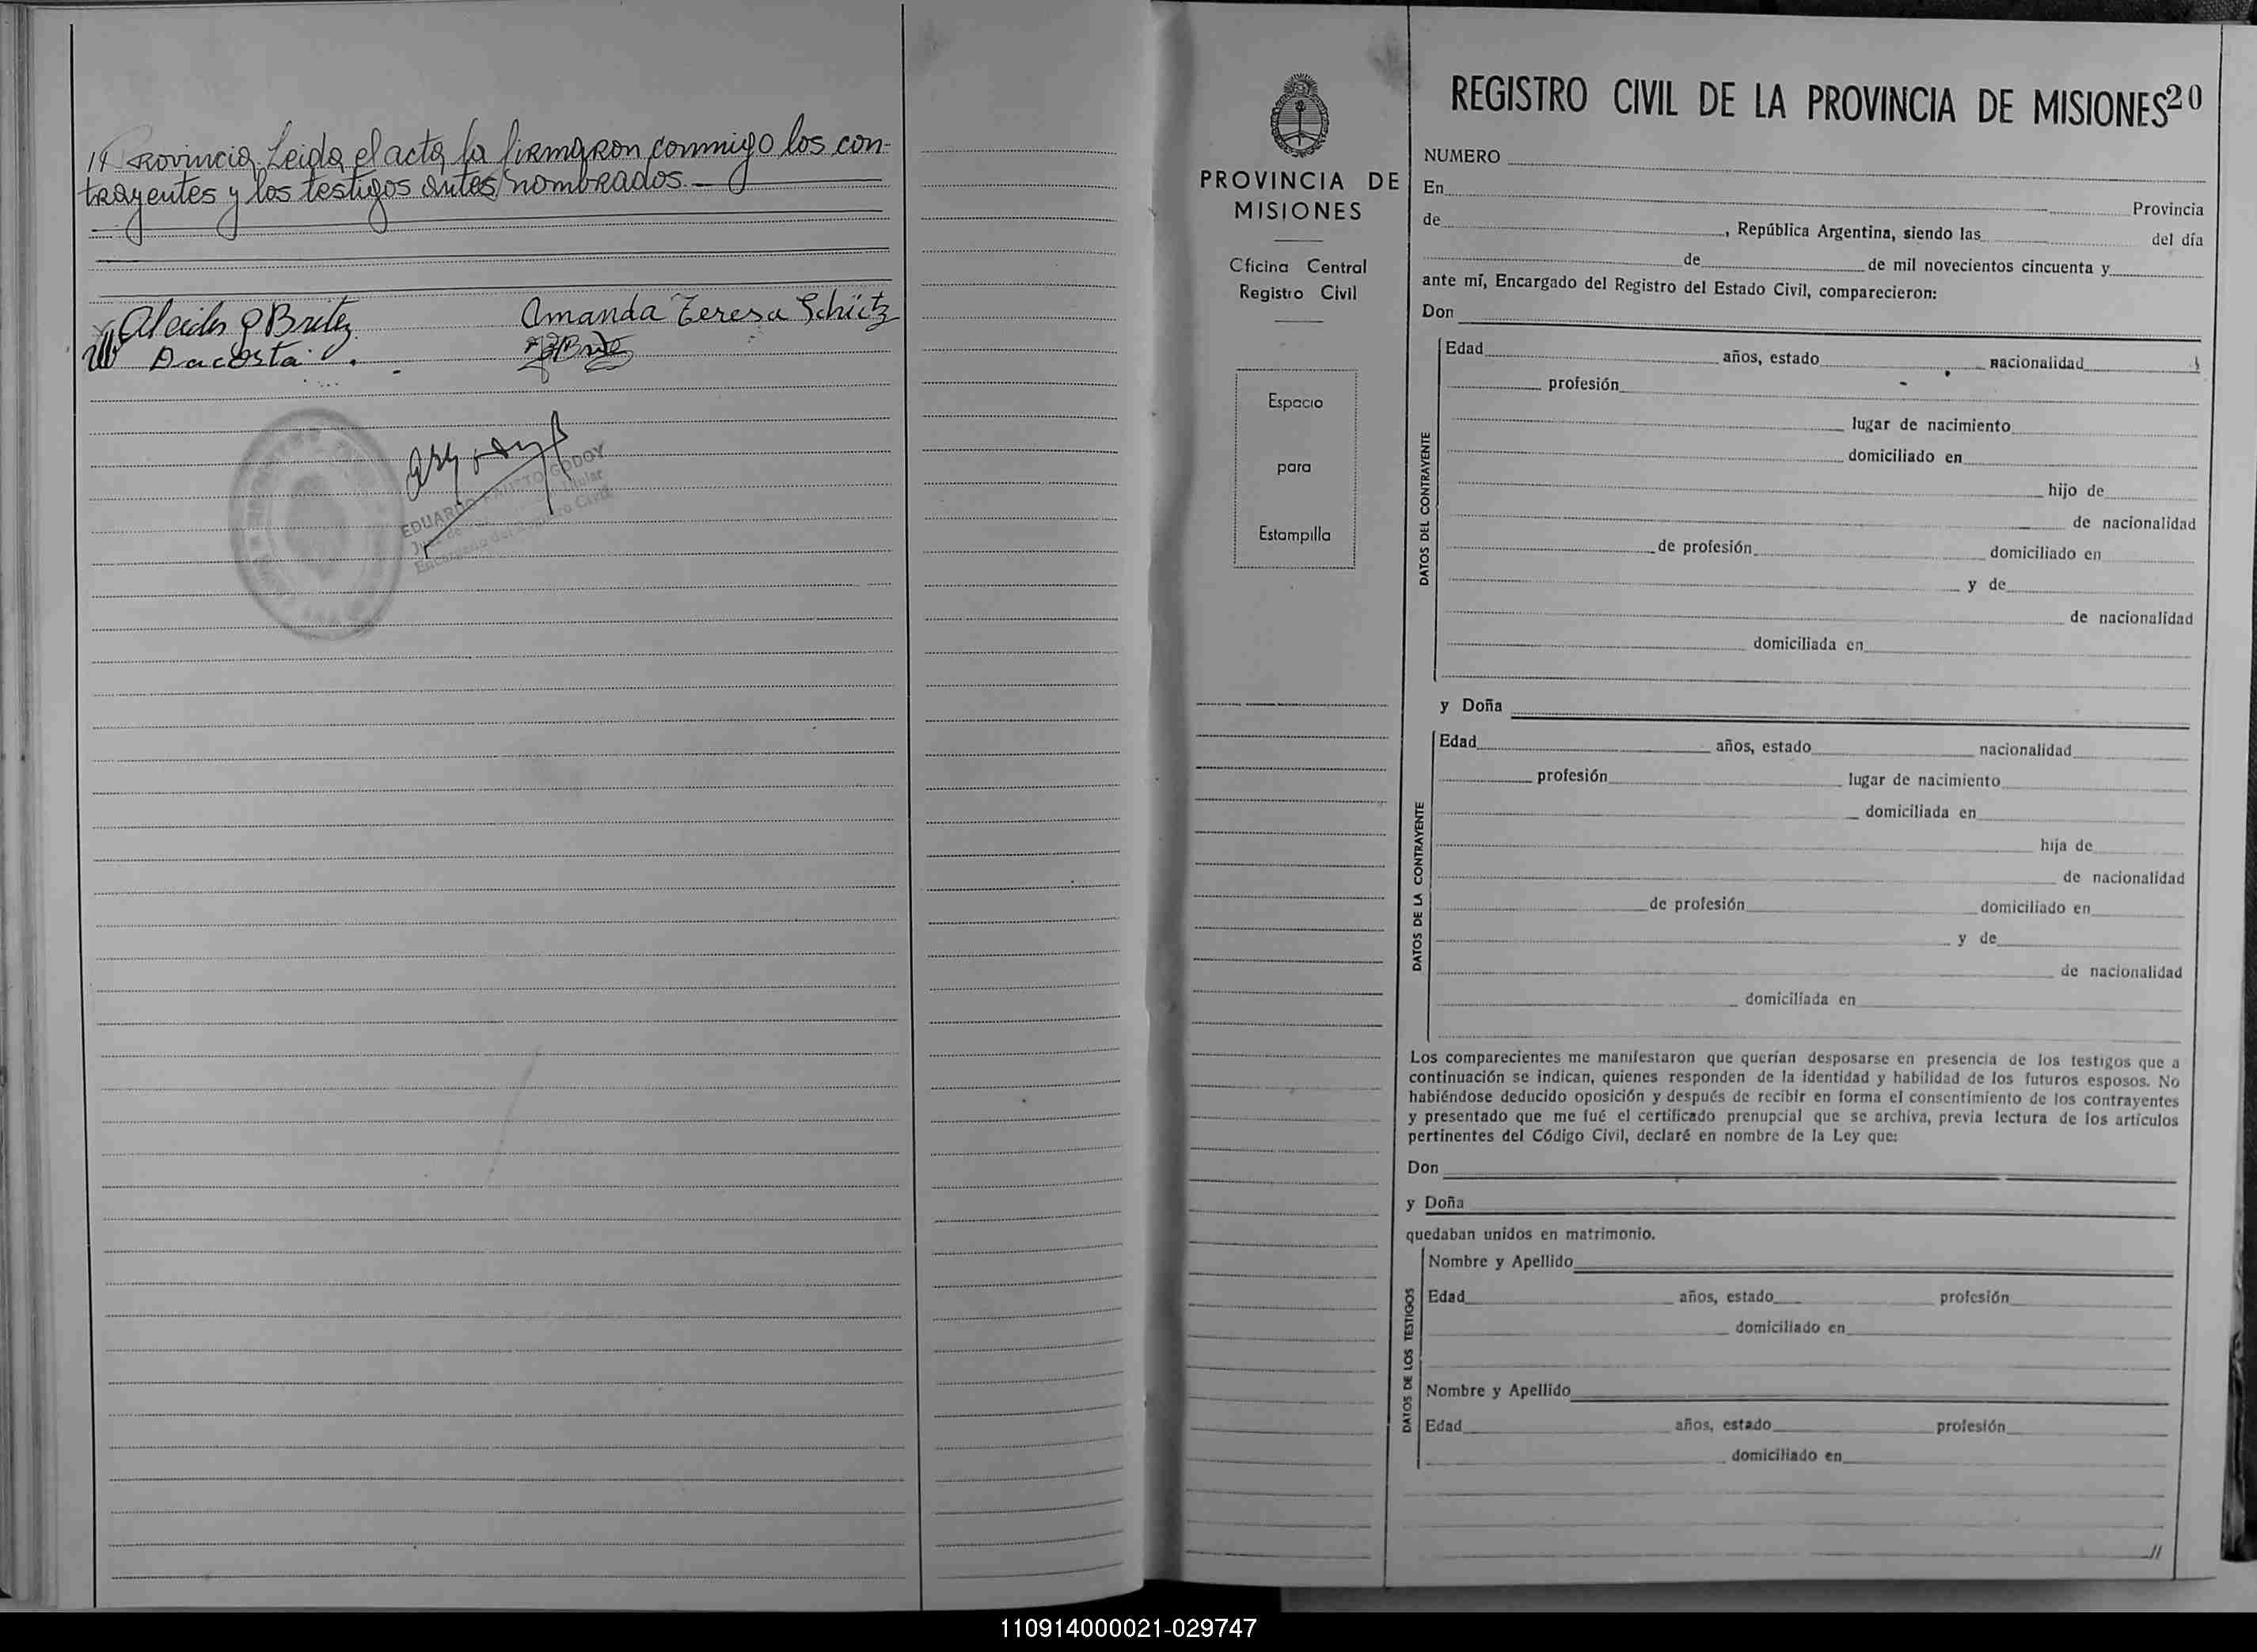 Provincia. Leida el acta, la firmaron conmigo los con-
trayentes y los testigos antes nombrados.
Amanda Teresa Schütz
Dacosta
EDUARDO GODOY
Titular
Encargado del Registro Civil
PROVINCIA DE
MISIONES
Oficina Central
Registro Civil
Espacio
para
Estampilla
REGISTRO CIVIL DE LA PROVINCIA DE MISIONES 20
NUMERO
En Provincia
de , República Argentina, siendo las del día
de de mil novecientos cincuenta y
ante mí, Encargado del Registro del Estado Civil, comparecieron:
Don
DATOS DEL CONTRAYENTE
Edad años, estado nacionalidad
profesión
lugar de nacimiento
domiciliado en
hijo de
de nacionalidad
de profesión domiciliado en
y de
de nacionalidad
domiciliada en
y Doña
DATOS DE LA CONTRAYENTE
Edad años, estado nacionalidad
profesión lugar de nacimiento
domiciliada en
hija de
de nacionalidad
de profesión domiciliado en
y de
de nacionalidad
domiciliada en
Los comparecientes me manifestaron que querían desposarse en presencia de los testigos que a
continuación se indican, quienes responden de la identidad y habilidad de los futuros esposos. No
habiéndose deducido oposición y después de recibir en forma el consentimiento de los contrayentes
y presentado que me fué el certificado prenupcial que se archiva, previa lectura de los artículos
pertinentes del Código Civil, declaré en nombre de la Ley que:
Don
y Doña
quedaban unidos en matrimonio.
DATOS DE LOS TESTIGOS
Nombre y Apellido
Edad años, estado profesión
domiciliado en
Nombre y Apellido
Edad años, estado profesión
domiciliado en
//
110914000021-029747